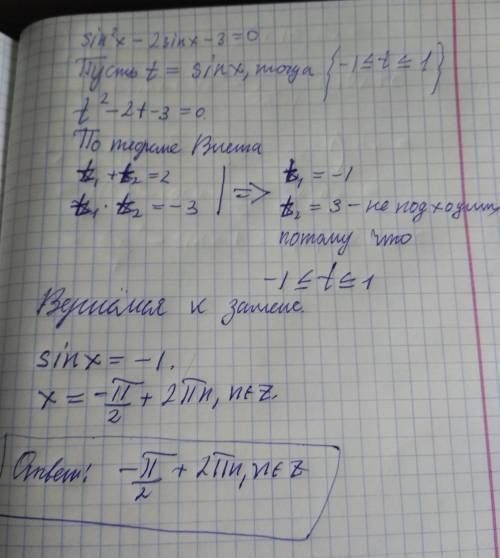 sin²x - 2sinx - 3 = 0
Пусть t = sinx, тогда {-1 ≤ t ≤ 1}
t² - 2t - 3 = 0
По теореме Виета
t₁ + t₂ = 2
t₁ · t₂ = -3 | => t₁ = -1
t₂ = 3 - не подходит,
потому что
-1 ≤ t ≤ 1
Вернёмся к замене.
sinx = -1.
x = -π/2 + 2πn, n ∈ z.
Ответ: -π/2 + 2πn, n ∈ z